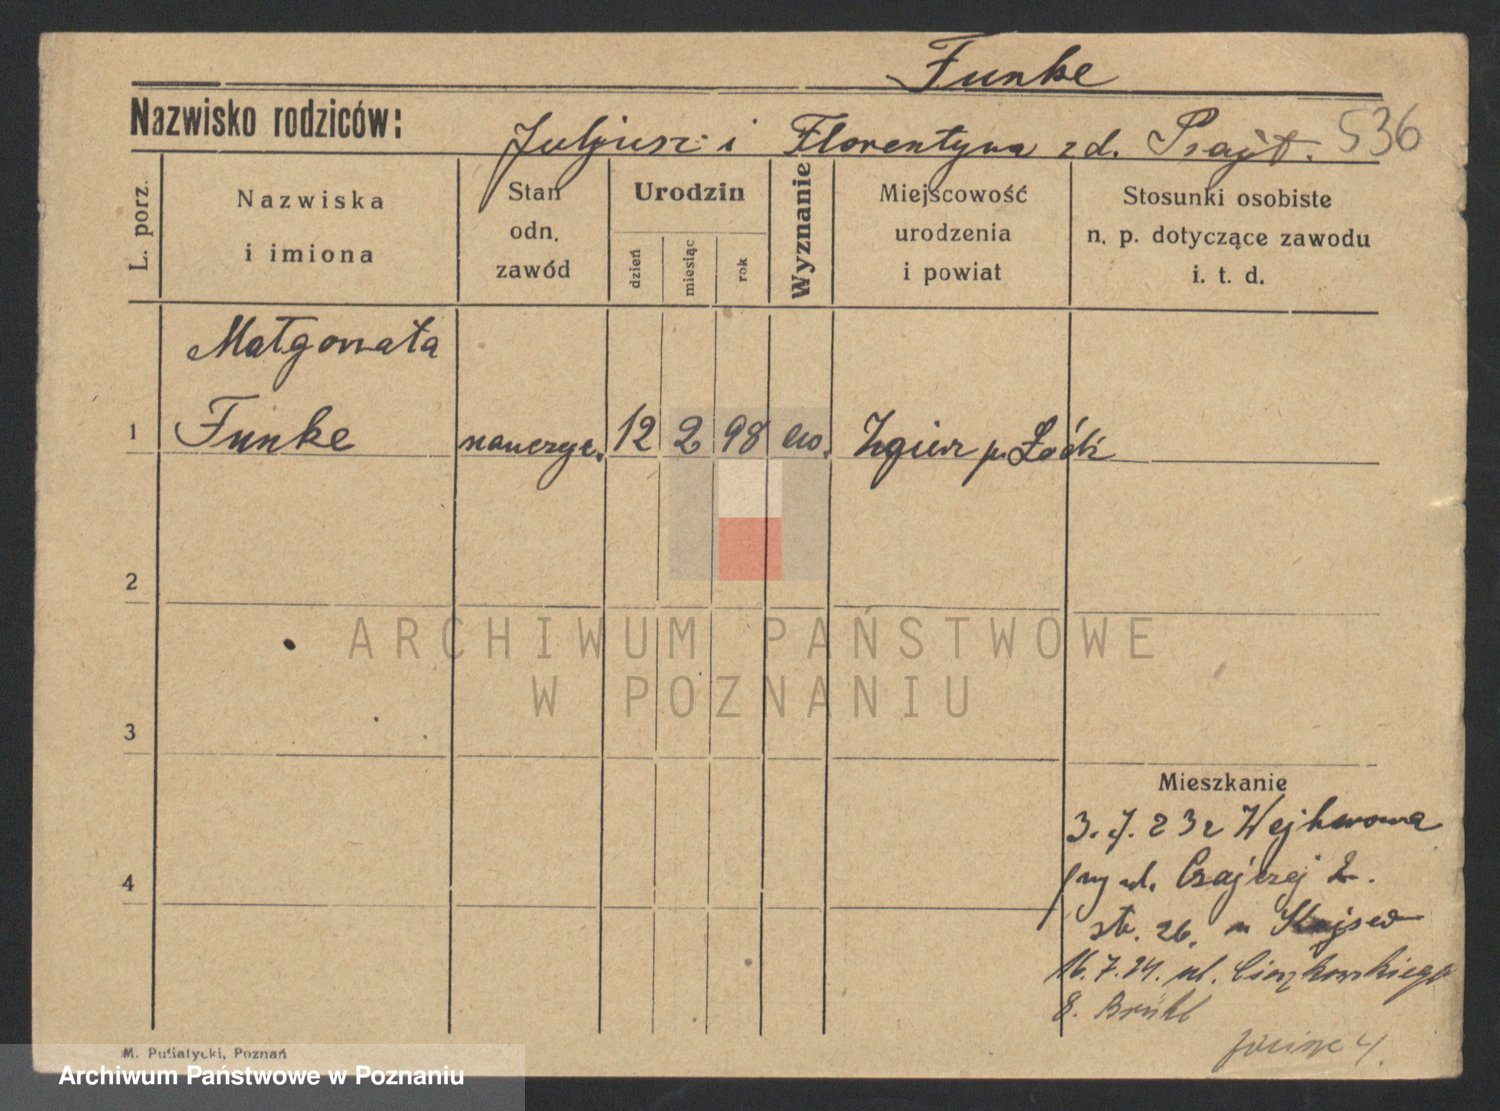 Funke
Nazwisko rodziców: Juljusz i Florentyna z d. 536
L. porz.
Nazwiska
i imiona
Stan
odn.
zawód
Urodzin
dzień
miesiąc
rok
Wyznanie
Miejscowość
urodzenia
i powiat
Stosunki osobiste
n. p. dotyczące zawodu
i. t. d.
Małgorzata
1 Funke nauczyc. 12 2 98 ew. Zgierz p. Łódź
2
ARCHIWUM PAŃSTWOWE
W POZNANIU
3
Mieszkanie
3. 7. 23 z Wejherowa
4
ul. 2.
str. 26.
16.7.24. ul. Cieszkowskiego
8. Brühl
M. Putiatycki, Poznań
Archiwum Państwowe w Poznaniu